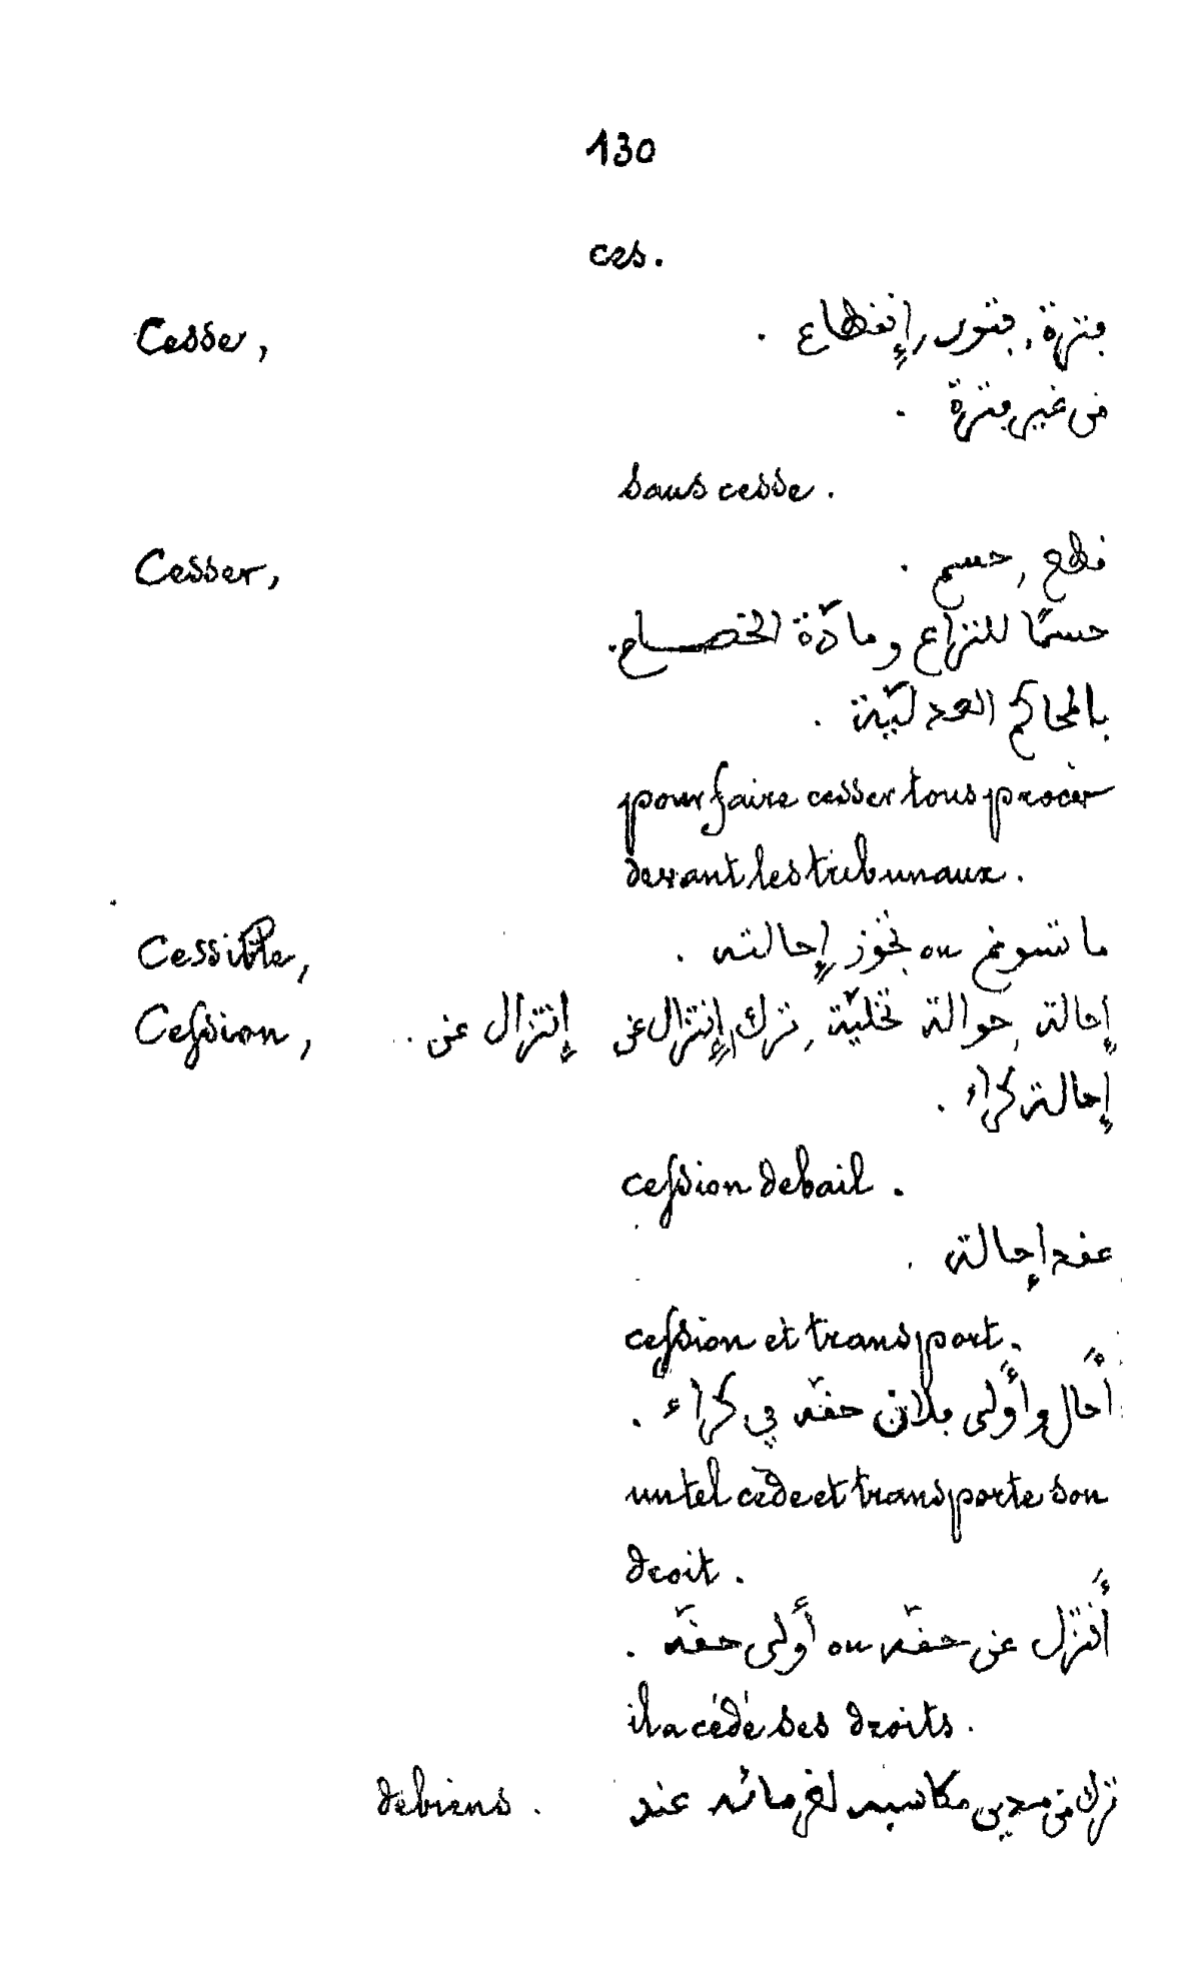 130
ces.
Cesse, فترة, فتور, إنقطاع .
من غير فترة .
sans cesse .
Cesser, قطع, حسم .
حسمًا للنزاع ومادّة الخصام .
بالمحاكم العدليّة .
pour faire cesser tous procès
devant les tribunaux .
Cessible, ما تسوغ ou تجوز إحالته .
Cession, إحالة, حوالة تخليّة, ترك, إنتزال عن إنتزال عن .
إحالة كراء .
cession de bail .
عقد إحالة .
cession et transport .
أحال وأولى فلان حقّه في كراء .
un tel cède et transporte son
droit .
أنزل عن حقّه ou أولى حقّه .
il a cédé ses droits .
de biens . ترك من مدين مكاسبه لغرمائه عند